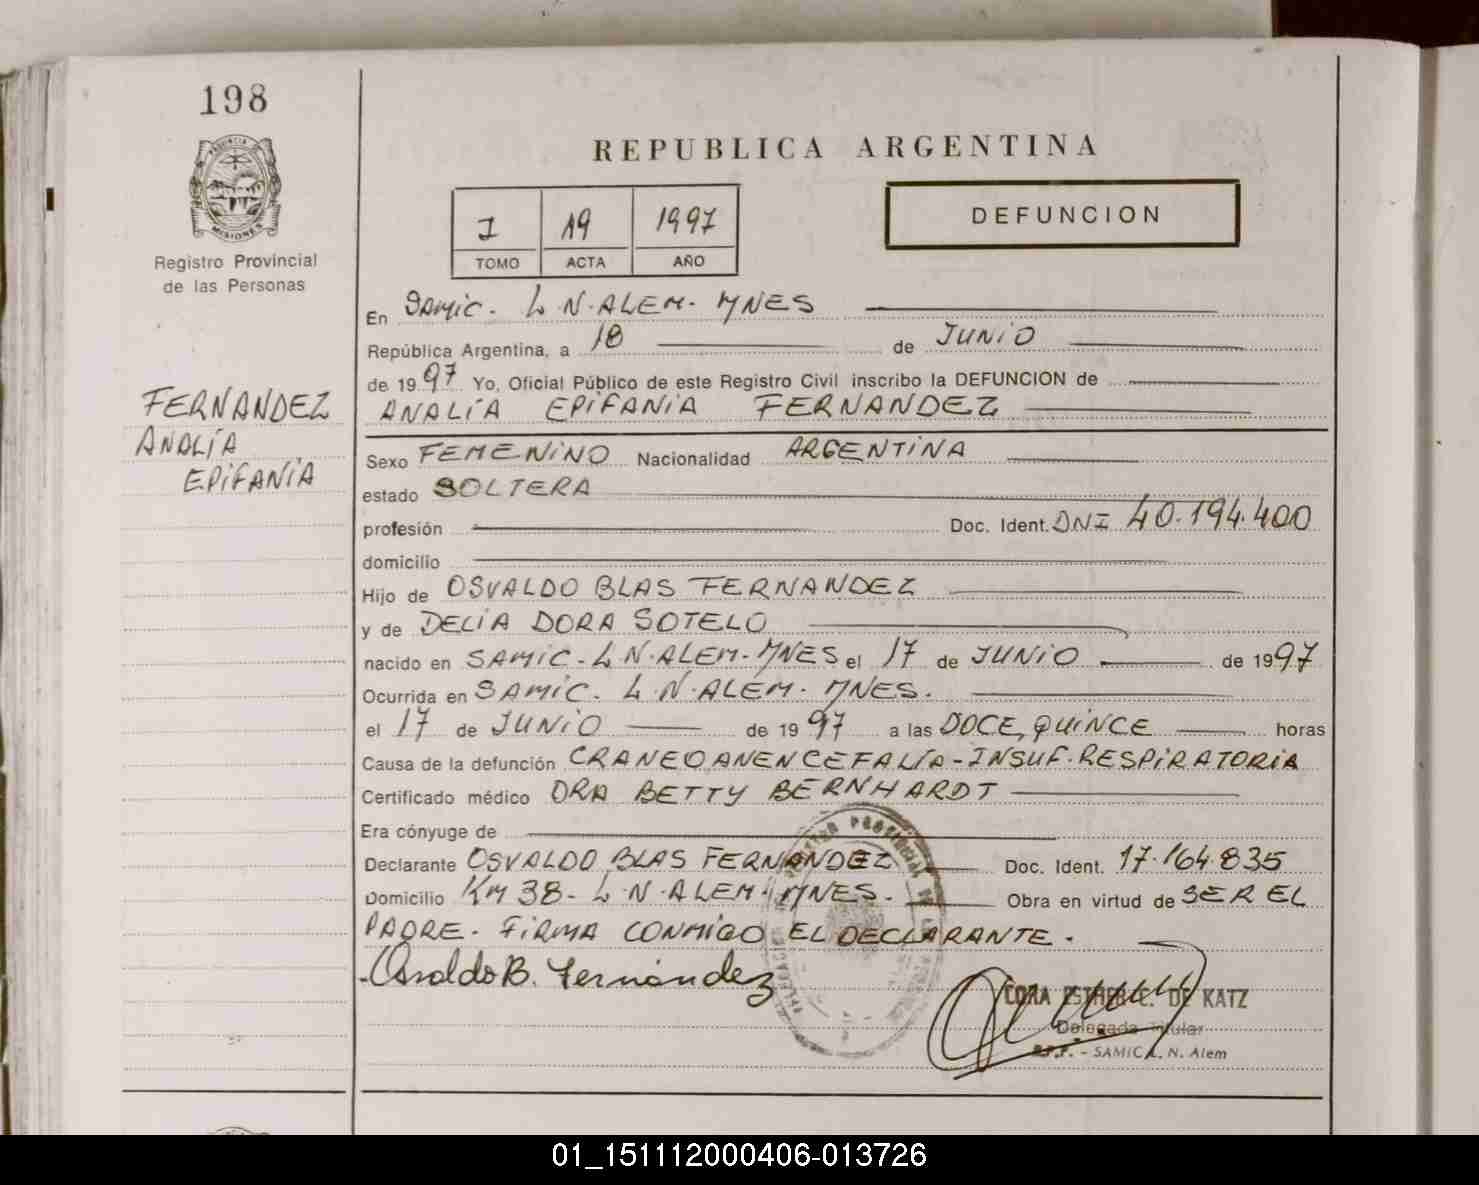 198
PROVINCIA
MISIONES
Registro Provincial
de las Personas
FERNANDEZ
ANALÍA
EPIFANIA
REPUBLICA ARGENTINA
I 19 1997
TOMO ACTA AÑO
DEFUNCION
En SAMIC. L. N. ALEM - MNES
República Argentina, a 18 de JUNIO
de 1997 Yo, Oficial Público de este Registro Civil inscribo la DEFUNCION de
ANALÍA EPIFANIA FERNANDEZ
Sexo FEMENINO Nacionalidad ARGENTINA
estado SOLTERA
profesión Doc. Ident. DNI 40.194.400
domicilio
Hijo de OSVALDO BLAS FERNANDEZ
y de DELIA DORA SOTELO
nacido en SAMIC - L. N. ALEM - MNES el 17 de JUNIO de 1997
Ocurrida en SAMIC. L. N. ALEM. MNES.
el 17 de JUNIO de 1997 a las DOCE, QUINCE horas
Causa de la defunción CRANEOANENCEFALÍA - INSUF. RESPIRATORIA
Certificado médico DRA BETTY BERNHARDT
Era cónyuge de
Declarante OSVALDO BLAS FERNANDEZ Doc. Ident. 17.164.835
Domicilio KM 38 - L. N. ALEM - MNES. Obra en virtud de SER EL
PADRE. FIRMA CONMIGO EL DECLARANTE.
Osvaldo B. Fernández
CORA ESTHER C. DE KATZ
Delegada Titular
R.P.P. - SAMIC L. N. Alem
01_151112000406-013726